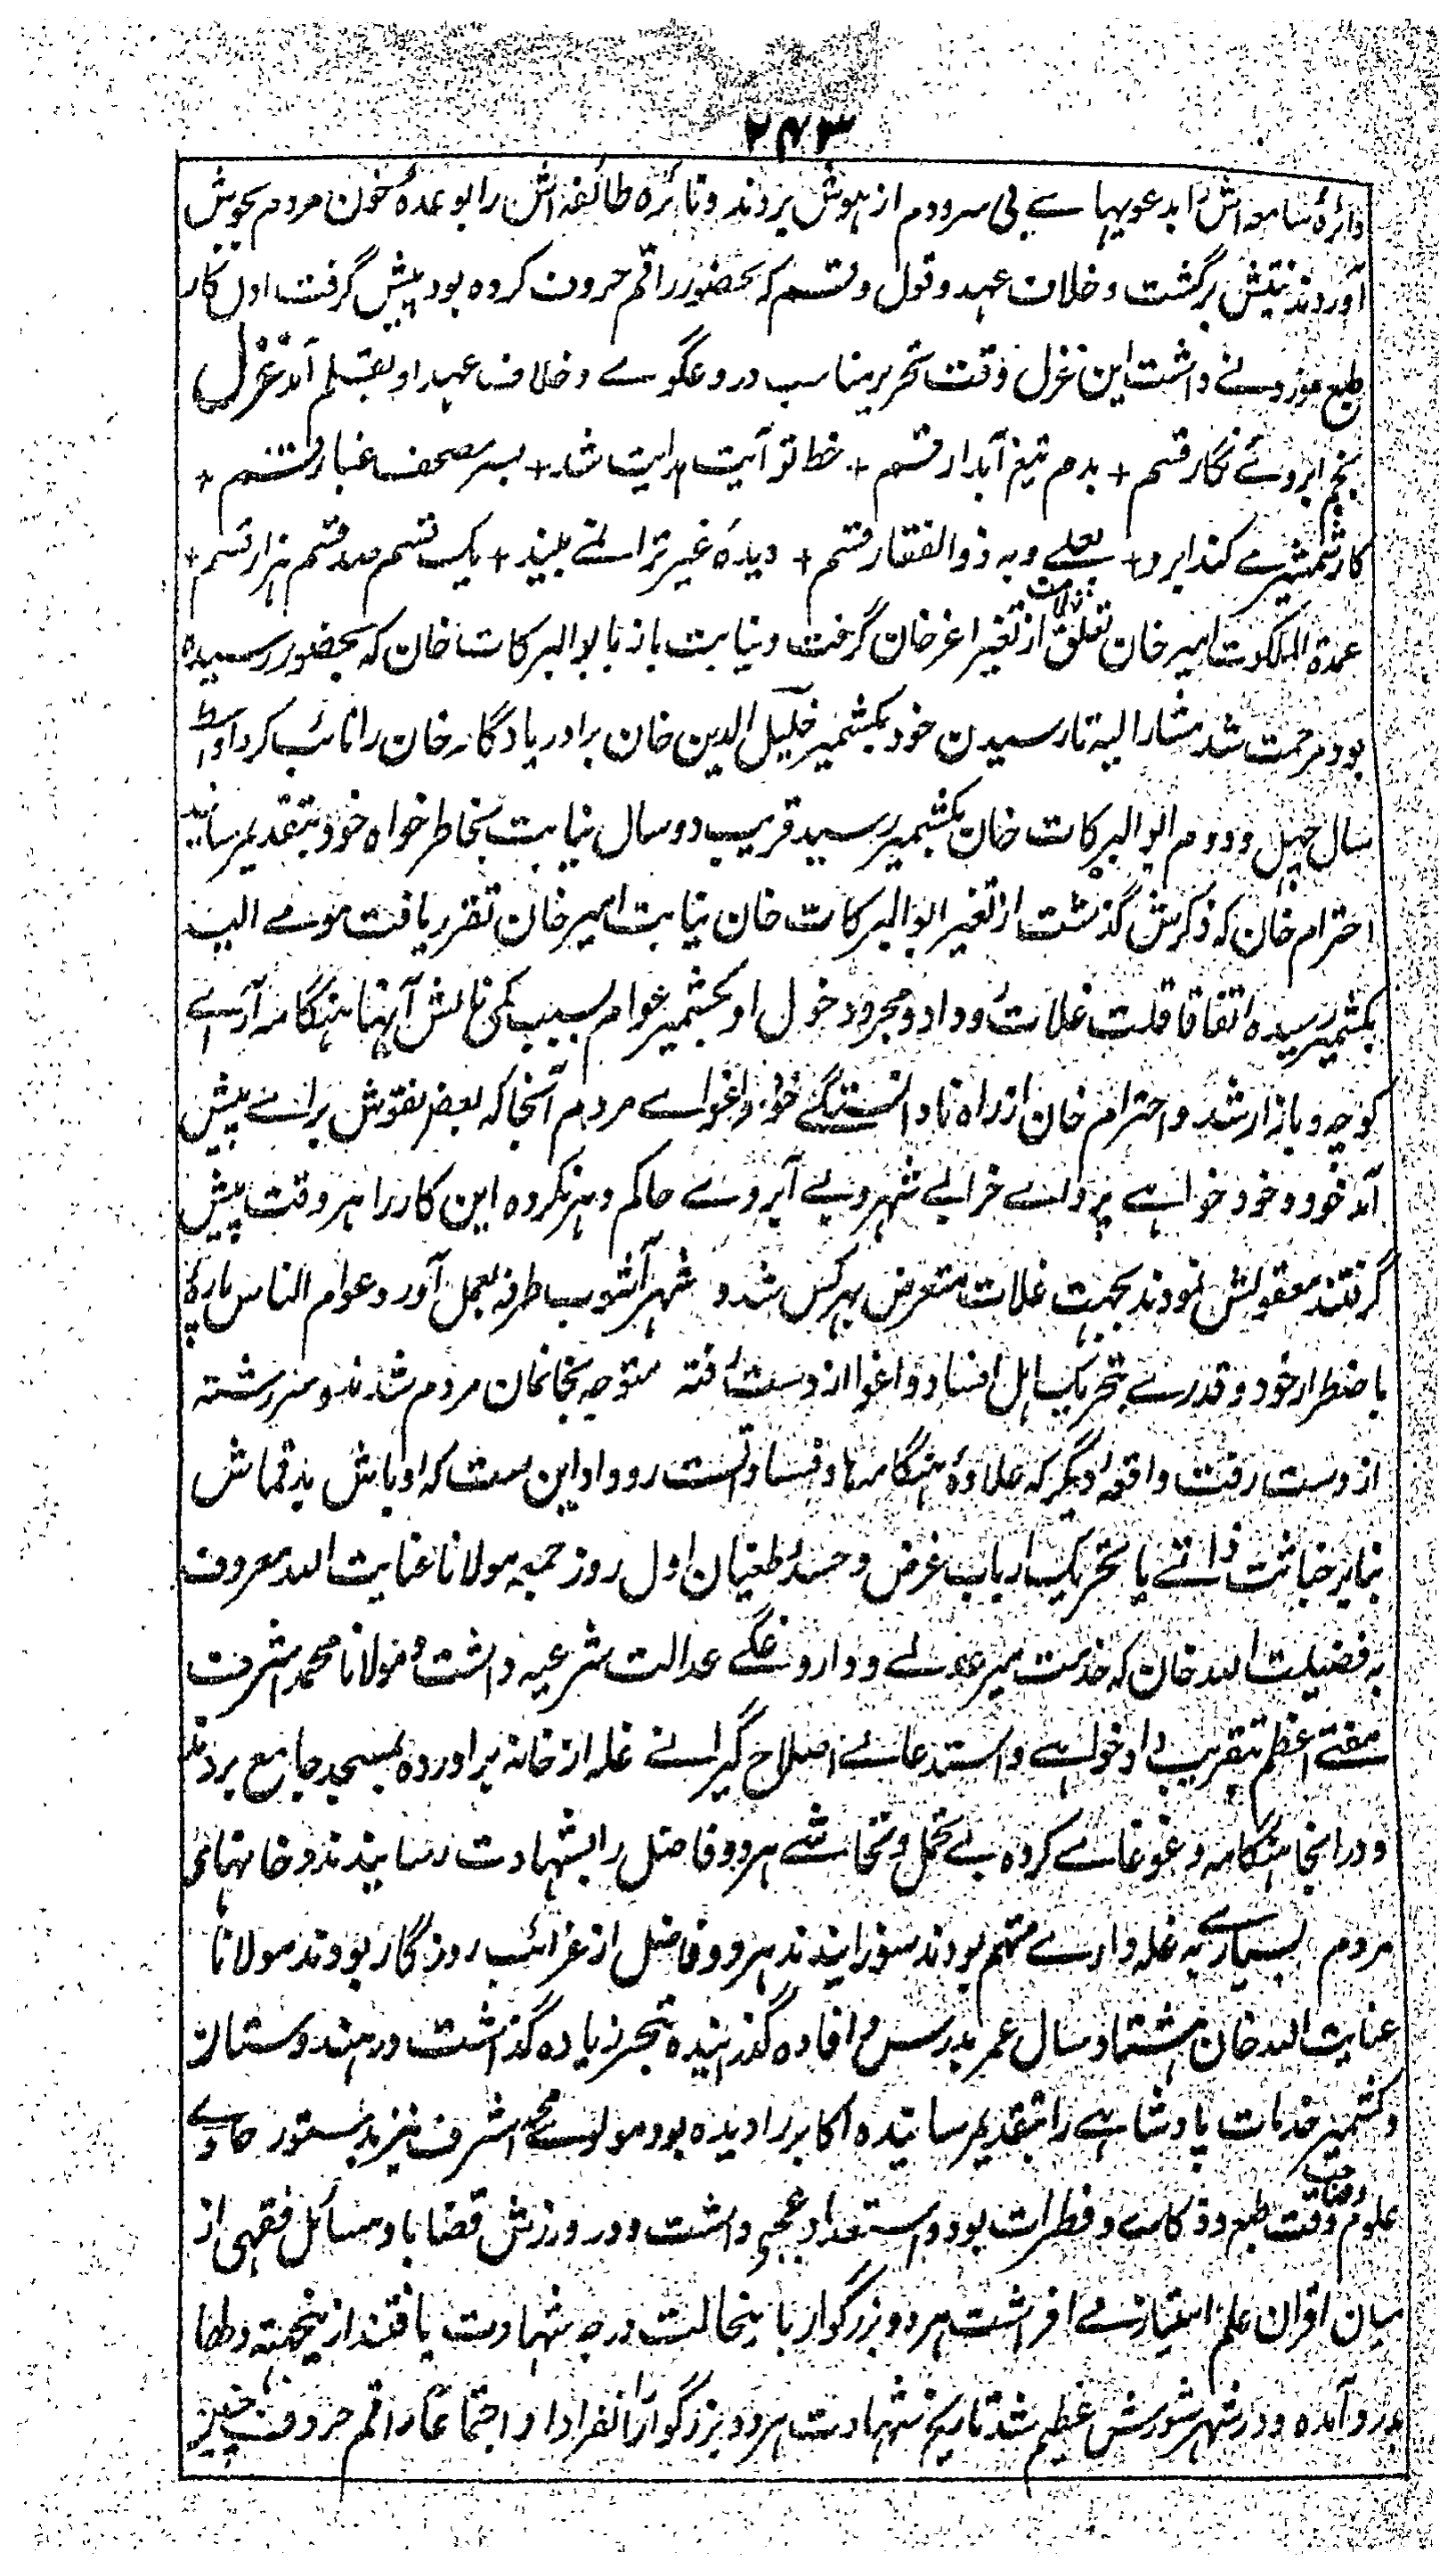 ۲۴۳
دائرهٔ سامعه اش را بدعویهاے بی سرودم از هوش بردند و نائره طائفه اش را بوعدهٔ خون مردم بجوش
آوردند نیتش برگشت و خلاف عهد و قول و قسم که بحضور راقم حروف کرده بود پیش گرفت اول کار
طبع موزونے داشت این غزل وقت تحریر مناسب دروغگوے و خلاف عهد او بقلم آمد غزل
بخم ابروے نگار قسم + بدم تیغ آبدار قسم + خط تو آیت هدایت شد + بسر مصحف غبار قسم +
کار شمشیرے کند ابرو + بعلے و به ذوالفقار قسم + دیدهٔ غیر ترا نے بیند + یک قسم صد قسم هزار قسم +
عمدة الملکوت امیر خان تعلق از تغیر اغر خان گرفت و نیابت باز بابوالبرکات خان که بحضور رسیده
بود مرحمت شد مشار الیه تا رسیدن خود بکشمیر خلیل الدین خان برادر یادگار خان را نائب کرد اواسط
سال چهل و دوم ابوالبرکات خان بکشمیر رسید قریب دو سال نیابت بخاطر خواه خود بتقدیم رسانید
احترام خان که ذکرش گذشت از تغیر ابوالبرکات خان نیابت امیر خان تقرر یافت موے الیه
بکشمیر رسیده اتفاقا قلت غلات رو داد و مجرد دخول او بکشمیر عوام بسبب کمی نالش آنها هنگامه آراے
کوچه و بازار شد و احترام خان از راه نادانستگے خود و اغواے مردم آنجا که بعض نفوش براے پیش
آمد خود و خود خواهے پرواے خرابے شهر و بے آبروے حاکم و هنر نکرده این کار را هر وقت پیش
گرفتند معقولش نمودند بجهت غلات متعرض بهر کس شد و شهر آشوب طرفه بعمل آورد عوام الناس پارهٔ
باضطرار خود و قدرے بتحریک اهل افساد و اغوا از دست رفته متوجه بخانمان مردم شدند و سررشته
از دست رفت واقعهٔ دیگر که علاوهٔ هنگامها و فساد تست رو داد این ست که اوباش بدقماش
بنابر خباثت ذاتے یا بتحریک ارباب غرض و حسد و طغیان اول روز جمعه مولانا عنایت الله معروف
به فضیلت الله خان که خدمت میر عدلے و داروغگے عدالت شرعیه داشت و مولانا محمد اشرف
مفتے اعظم بتقریب دادخواهے و استدعاے اصلاح گرانے غله از خانه براورده بمسجد جامع بردند
و در انجا هنگامه و غوغاے کرده بے تحمل و تحاشے هر دو فاضل را بشهادت رسانیدند و خانهائی
مردم بسیارے به غله دارے متهم بودند سوزانیدند هر دو فاضل از غرائب روزگار بودند مولانا
عنایت الله خان هشتاد سال عمر بدرس و افاده گذرانیده تبحر زیاده گذاشت در هندوستان
و کشمیر خدمات پادشاهے را بتقدیم رسانیده اکابر را دیده بود مولوے محمد اشرف نیز بدستور حاوے
علوم و صاحب دقت طبع و ذکاے و فطرات بود و استعداد عجبے داشت و در ورزش قضایا و مسائل فقهی از
میان اقران علم امتیاز مے افراشت هر دو بزرگوار باینحالت درجه شهادت یافتند ازینجهته و طغا
بدرو آمده و در شهر شورش عظیم شد تاریخ شهادت هر دو بزرگوار را انفرادا و اجتماعا راقم حروف چنین